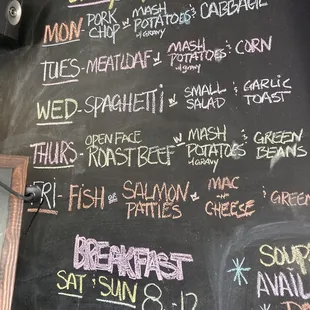 MON- PORK CHOP w MASH POTATOES w GRAVY & CABBAGE
TUES- MEATLOAF w MASH POTATOES w GRAVY & CORN
WED- SPAGHETTI w SMALL SALAD & GARLIC TOAST
THURS- OPEN FACE ROAST BEEF w MASH POTATOES w GRAVY & GREEN BEANS
FRI- FISH or SALMON PATTIES w MAC AND CHEESE & GREEN
BREAKFAST
SAT & SUN 8-12
SOUP
AVAIL